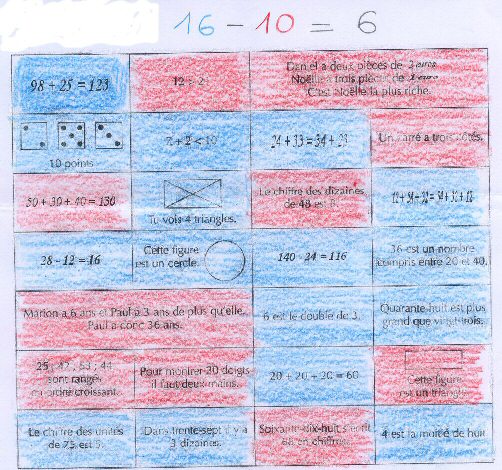 16 - 10 = 6
98 + 25 = 123
Daniel a deux pièces de 2 euros
Noëlle a trois pièces de 1 euro
C'est Noëlle la plus riche.
10 points
7 + 2 < 10
24 + 33 = 34 + 23
Un carré a trois côtés.
50 + 30 + 40 = 130
Tu vois 4 triangles.
Le chiffre des dizaines
de 48 est 8.
28 - 12 = 16
Cette figure
est un cercle.
140 - 24 = 116
36 est un nombre
compris entre 20 et 40.
Marion a 6 ans et Paul a 3 ans de plus qu'elle.
Paul a donc 36 ans.
6 est le double de 3.
Quarante-huit est plus
grand que vingt-trois.
sont rangés
en ordre croissant.
Pour montrer 30 doigts
il faut deux mains.
20 + 20 + 20 = 60
Cette figure
est un triangle.
Le chiffre des unités
de 75 est 5.
Dans trente-sept il y a
3 dizaines.
Soixante-dix-huit s'écrit
68 en chiffres.
4 est la moitié de huit